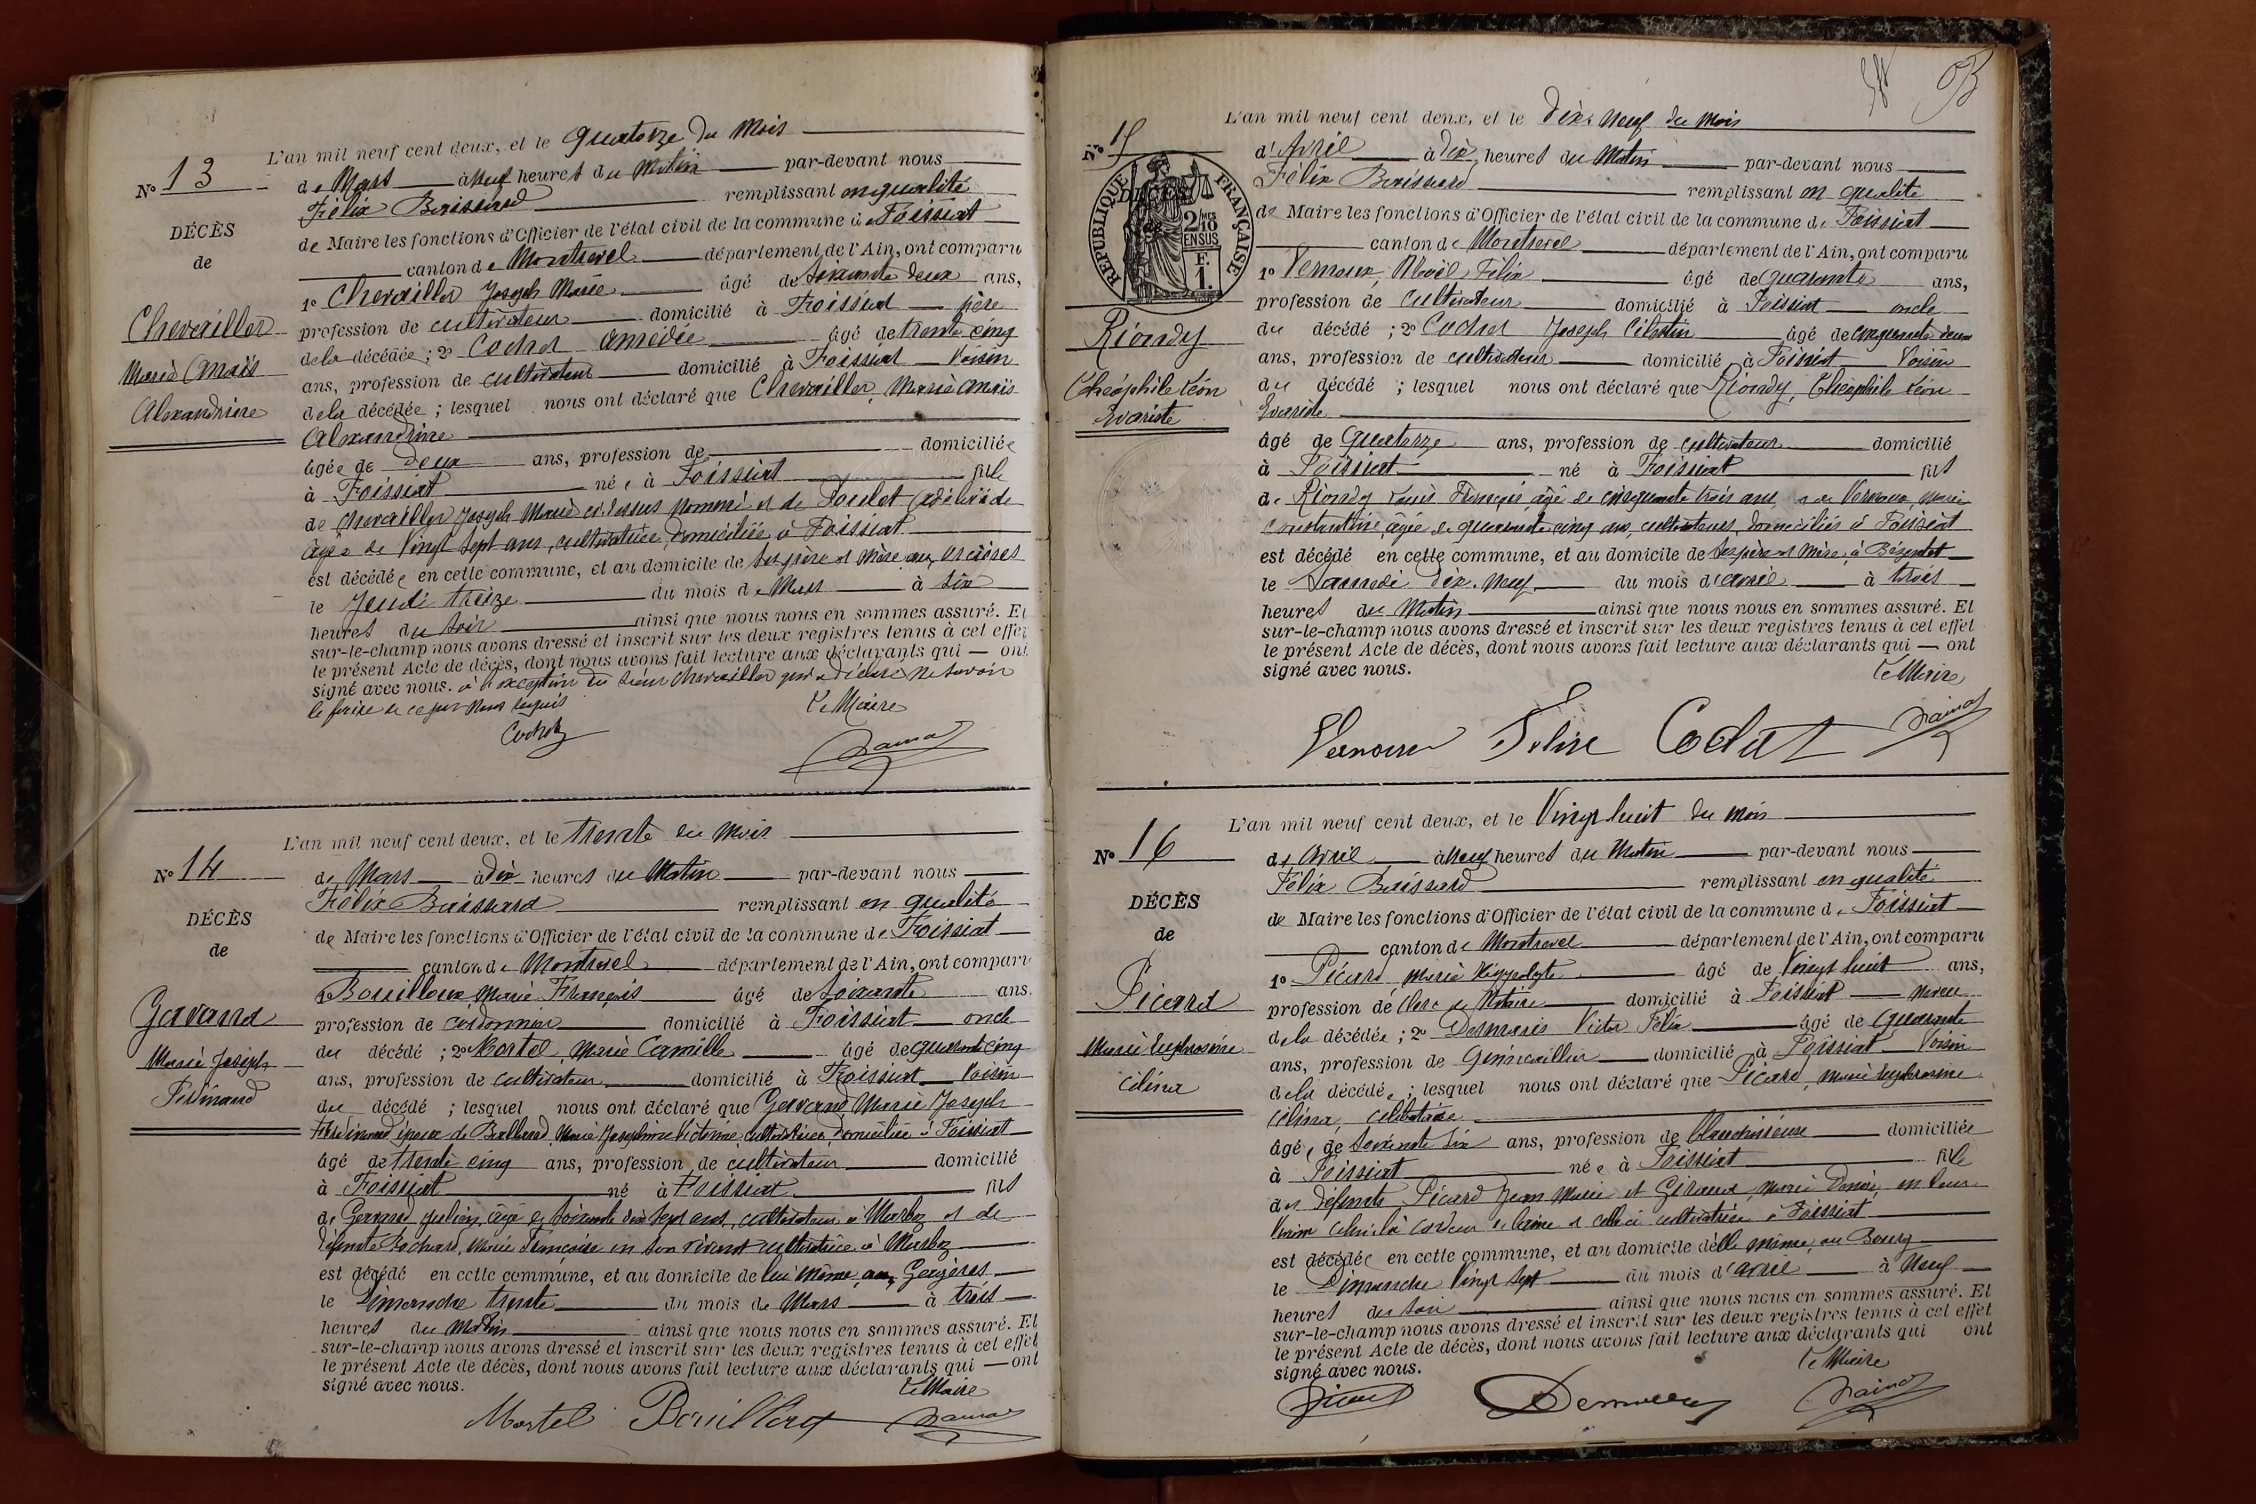 L'an mil neuf cent deux, et le quatorze du Mois
No 13
de Mars à neuf heures du Matin par-devant nous
Félix Boissard remplissant en qualité
DÉCÈS
de Maire les fonctions d'Officier de l'état civil de la commune de Foissiat
de
canton de Montrevel département de l'Ain, ont comparu
1o Chevailler Joseph Marie âgé de soixante deux ans,
Chevailler
profession de cultivateur domicilié à Foissiat père
de la décédée ; 2o Cochet Amédée âgé de trente cinq
Marie Anaïs
ans, profession de cultivateur domicilié à Foissiat Voisin
Alexandrine
de la décédée ; lesquel nous ont déclaré que Chevailler, Marie Anaïs
Alexandrine
âgée de deux ans, profession de domiciliée
à Foissiat née à Foissiat fille
de Chevailler Joseph Marie ci-dessus nommé et de Adélaïde
âgée de Vingt sept ans, cultivatrice, domiciliée à Foissiat
est décédée en cette commune, et au domicile de ses père et mère aux
le Jeudi treize du mois de Mars à six
heures du soir ainsi que nous nous en sommes assuré. Et
sur-le-champ nous avons dressé et inscrit sur les deux registres tenus à cet effet
le présent Acte de décès, dont nous avons fait lecture aux déclarants qui — ont
signé avec nous. à l'exception du sieur Chevailler qui a déclaré ne savoir
le faire de ce par nous requis
Le Maire
Cochet
L'an mil neuf cent deux, et le trente du mois
No 14
de Mars à dix heures du Matin par-devant nous
Félix Boissard remplissant en qualité
DÉCÈS
de Maire les fonctions d'Officier de l'état civil de la commune de Foissiat
de
canton de Montrevel département de l'Ain, ont comparu
1o Bouilloux, Marie François âgé de soixante ans.
Gavand
profession de cordonnier domicilié à Foissiat oncle
Marie Joseph
du décédé ; 2o Mortel, Marie Camille âgé de quarante cinq
Ferdinand
ans, profession de cultivateur domicilié à Foissiat Voisin
du décédé ; lesquel nous ont déclaré que Gavand Marie Joseph
Ferdinand époux de Balland, Marie Josephine Victorine, cultivatrice, domiciliée à Foissiat
âgé de trente cinq ans, profession de cultivateur domicilié
à Foissiat né à Foissiat fils
de Gavand Julien, âgé de soixante dix sept ans, cultivateur à Marboz et de
défunte Bochard, Marie Françoise en son vivant cultivatrice à Marboz
est décédé en cette commune, et au domicile de lui même, aux
le Dimanche trente du mois de Mars à trois
heures du Matin ainsi que nous nous en sommes assuré. Et
sur-le-champ nous avons dressé et inscrit sur les deux registres tenus à cet effet
le présent Acte de décès, dont nous avons fait lecture aux déclarants qui — ont
signé avec nous.
Le Maire
Mortel Bouilloux
L'an mil neuf cent deux, et le Dix neuf du Mois
No 15
d'Avril à Dix heures du Matin par-devant nous
Félix Boissard remplissant en qualité
DÉCÈS
RÉPUBLIQUE FRANÇAISE
2/10 EN SUS
F. 1.
de Maire les fonctions d'Officier de l'état civil de la commune de Foissiat
canton de Montrevel département de l'Ain, ont comparu
1o Vernoux, Félix âgé de quarante ans,
profession de cultivateur domicilié à Foissiat oncle
Riondy
du décédé ; 2o Cochet Joseph Célestin âgé de cinquante deux
ans, profession de cultivateur domicilié à Foissiat Voisin
Théophile Léon
du décédé ; lesquel nous ont déclaré que Riondy, Théophile Léon
Evariste
Evariste
âgé de quatorze ans, profession de cultivateur domicilié
à Foissiat né à Foissiat fils
de Riondy Louis François, âgé de cinquante trois ans, et de Vernoux, Marie
Constantine, âgée de quarante cinq ans, cultivateurs, domiciliés à Foissiat
est décédé en cette commune, et au domicile de ses père et mère, à
le Samedi dix neuf du mois d'avril à trois
heures du Matin ainsi que nous nous en sommes assuré. Et
sur-le-champ nous avons dressé et inscrit sur les deux registres tenus à cet effet
le présent Acte de décès, dont nous avons fait lecture aux déclarants qui — ont
signé avec nous.
Le Maire
Vernoux Félix Cochet
L'an mil neuf cent deux, et le Vingt huit du mois
No 16
de Avril à neuf heures du Matin par-devant nous
Félix Boissard remplissant en qualité
DÉCÈS
de Maire les fonctions d'Officier de l'état civil de la commune de Foissiat
de
canton de Montrevel département de l'Ain, ont comparu
1o Picard, Marie Hyppolyte âgé de Vingt huit ans,
Picard
profession de Clerc de Notaire domicilié à Foissiat neveu
de la décédée ; 2o Desmaris Victor Félix âgé de Quarante
Marie Euphrosine
ans, profession de domicilié à Foissiat Voisin
Célina
de la décédée ; lesquel nous ont déclaré que Picard, Marie Euphrosine
Célina, célibataire
âgée de soixante six ans, profession de blanchisseuse domiciliée
à Foissiat née à Foissiat fille
des défunts Picard Jean Marie et Giraud, Marie Denise, en leur
vivant celui-là et celle-ci cultivatrice à Foissiat
est décédée en cette commune, et au domicile d'elle même, au Bourg
le Dimanche Vingt sept du mois d'avril à Neuf
heures du soir ainsi que nous nous en sommes assuré. Et
sur-le-champ nous avons dressé et inscrit sur les deux registres tenus à cet effet
le présent Acte de décès, dont nous avons fait lecture aux déclarants qui ont
signé avec nous.
Le Maire
Picard